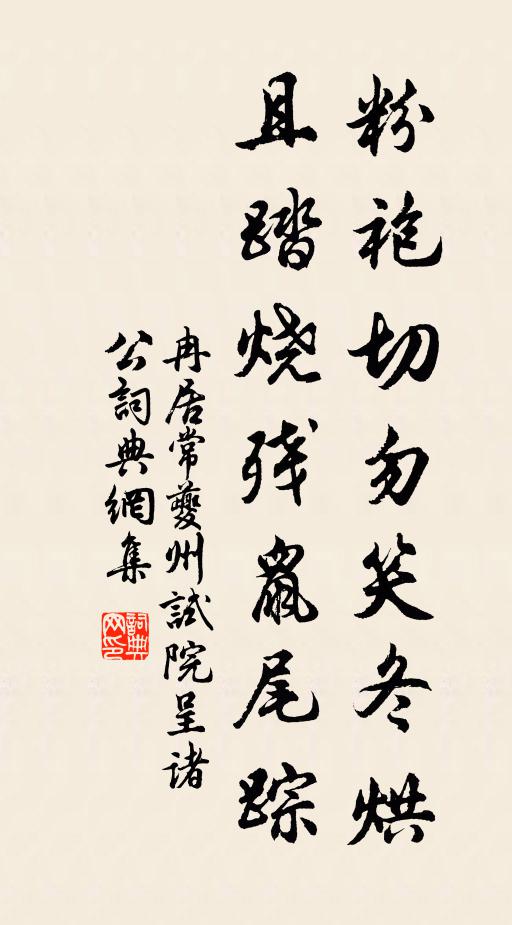 粉袍切勿笑冬烘
且踏烧残鼠尾踪
冉居常夔州試院呈诸
公詞典網集
詞典
网印